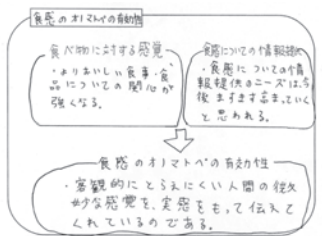 食感のオノマトペの有効性
食べ物に対する感覚
・よりおいしい食事・食
品についての関心が
強くなる。
食感についての情報提供
・食感についての情
報提供のニーズは、今
後ますます高まっていく
と思われる。
食感のオノマトペの有効性
・客観的にとらえにくい人間の微
妙な感覚を、実感をもって伝えて
くれているのである。